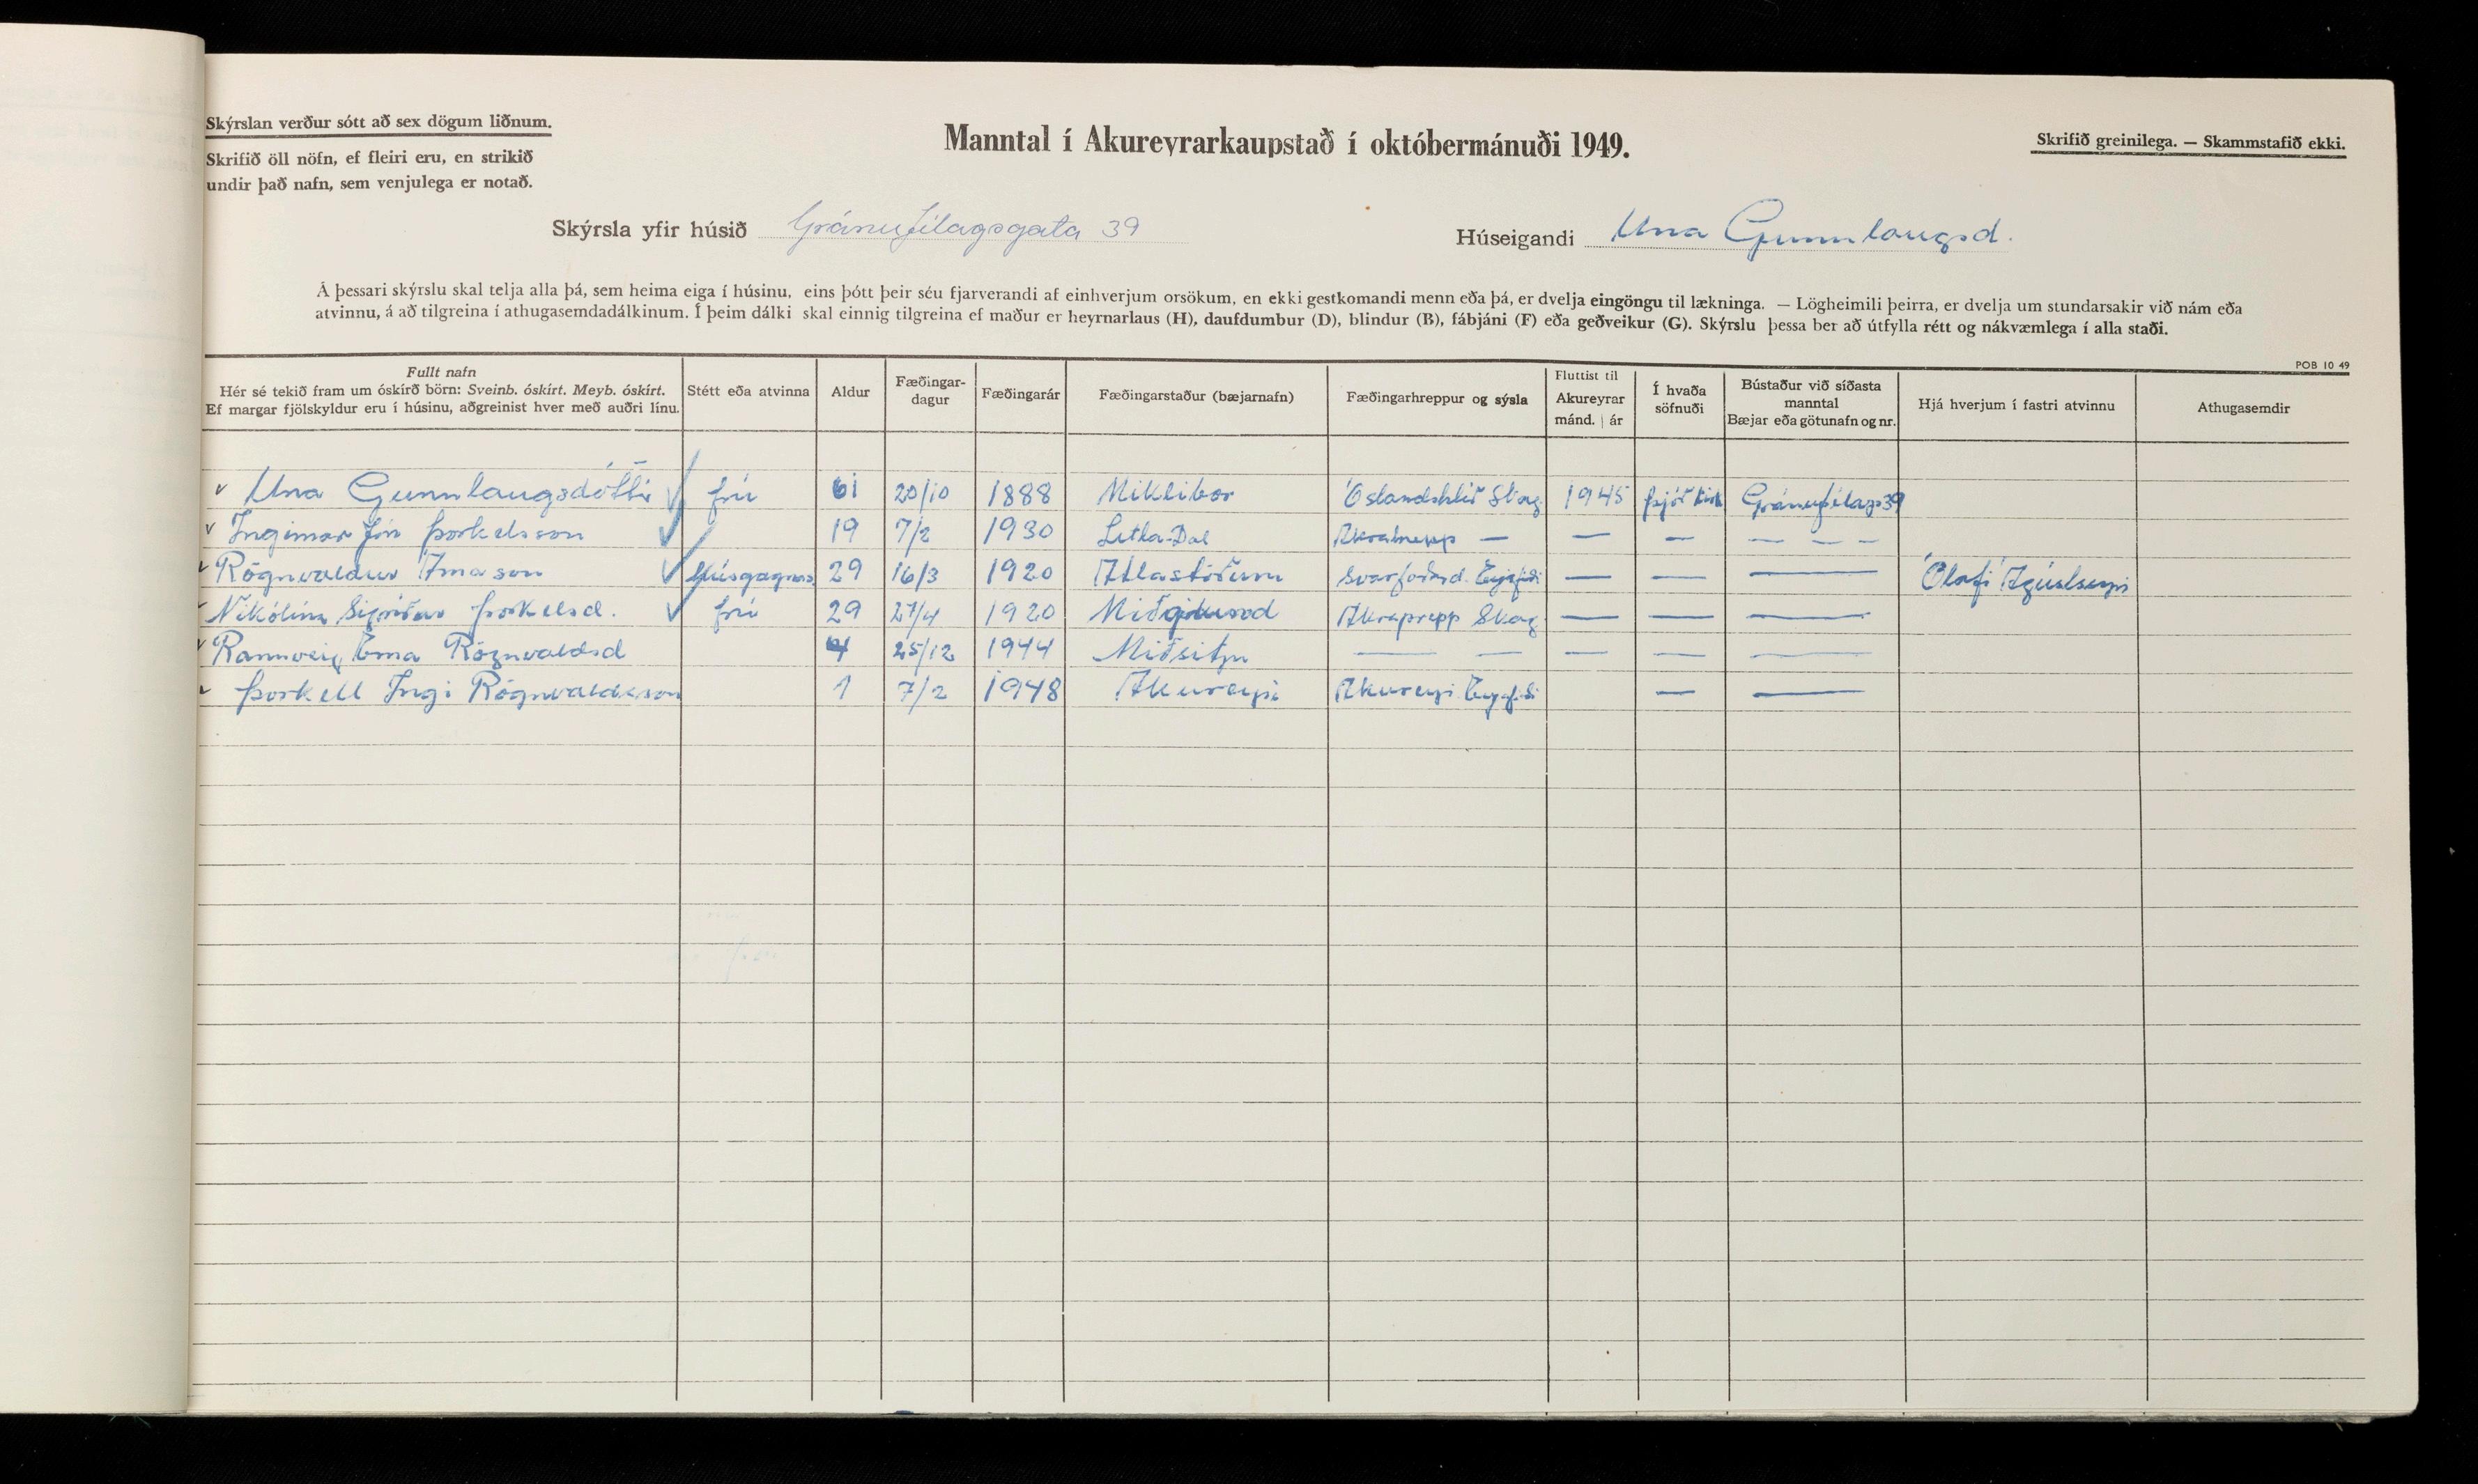 Skýrslan verður sótt að sex dögum liðnum.
Skrifið öll nöfn, ef fleiri eru, en strikið
undir það nafn, sem venjulega er notað.
Manntal í Akureyrarkaupstað í októbermánuði 1949.
Skrifið greinilega. — Skammstafið ekki.
Skýrsla yfir húsið Gránufélagsgata 39
Húseigandi Una Gunnlaugsd.
Á þessari skýrslu skal telja alla þá, sem heima eiga í húsinu, eins þótt þeir séu fjarverandi af einhverjum orsökum, en ekki gestkomandi menn eða þá, er dvelja eingöngu til lækninga. — Lögheimili þeirra, er dvelja um stundarsakir við nám eða
atvinnu, á að tilgreina í athugasemdadálkinum. Í þeim dálki skal einnig tilgreina ef maður er heyrnarlaus (H), daufdumbur (D), blindur (B), fábjáni (F) eða geðveikur (G). Skýrslu þessa ber að útfylla rétt og nákvæmlega í alla staði.
POB 10 49
Fullt nafn
Hér sé tekið fram um óskírð börn: Sveinb. óskírt. Meyb. óskírt.
Ef margar fjölskyldur eru í húsinu, aðgreinist hver með auðri línu.
Stétt eða atvinna
Aldur
Fæðingar-
dagur
Fæðingarár
Fæðingarstaður (bæjarnafn)
Fæðingarhreppur og sýsla
Fluttist til
Akureyrar
mánd. | ár
Í hvaða
söfnuði
Bústaður við síðasta
manntal
Bæjar eða götunafn og nr.
Hjá hverjum í fastri atvinnu
Athugasemdir
✓ Una Gunnlaugsdóttir ✓ frú 61 20/10 1888 Miklibær Óslandshlíð Skag. 1945 þjóðkirk Gránufélags 39
✓ Ingimar Jón Þorkelsson ✓ 19 7/2 1930 Litla-Dal Akrahrepp — — — — — —
✓ Rögnvaldur Árnason ✓ 29 16/3 1920 Atlastöðum Svarfaðard. Eyjafj. — — — Ólafi Ágústssyni
✓ Nikólína Sigríður Þorkelsd. ✓ frú 29 27/4 1920 Miðgrund Skag — — —
✓ Rannveig Rögnvaldsd 4 25/12 1944 Miðsitju — — — — —
✓ Þorkell Ingi Rögnvaldsson 1 7/2 1948 Akureyri Akureyri Eyjafj. — —